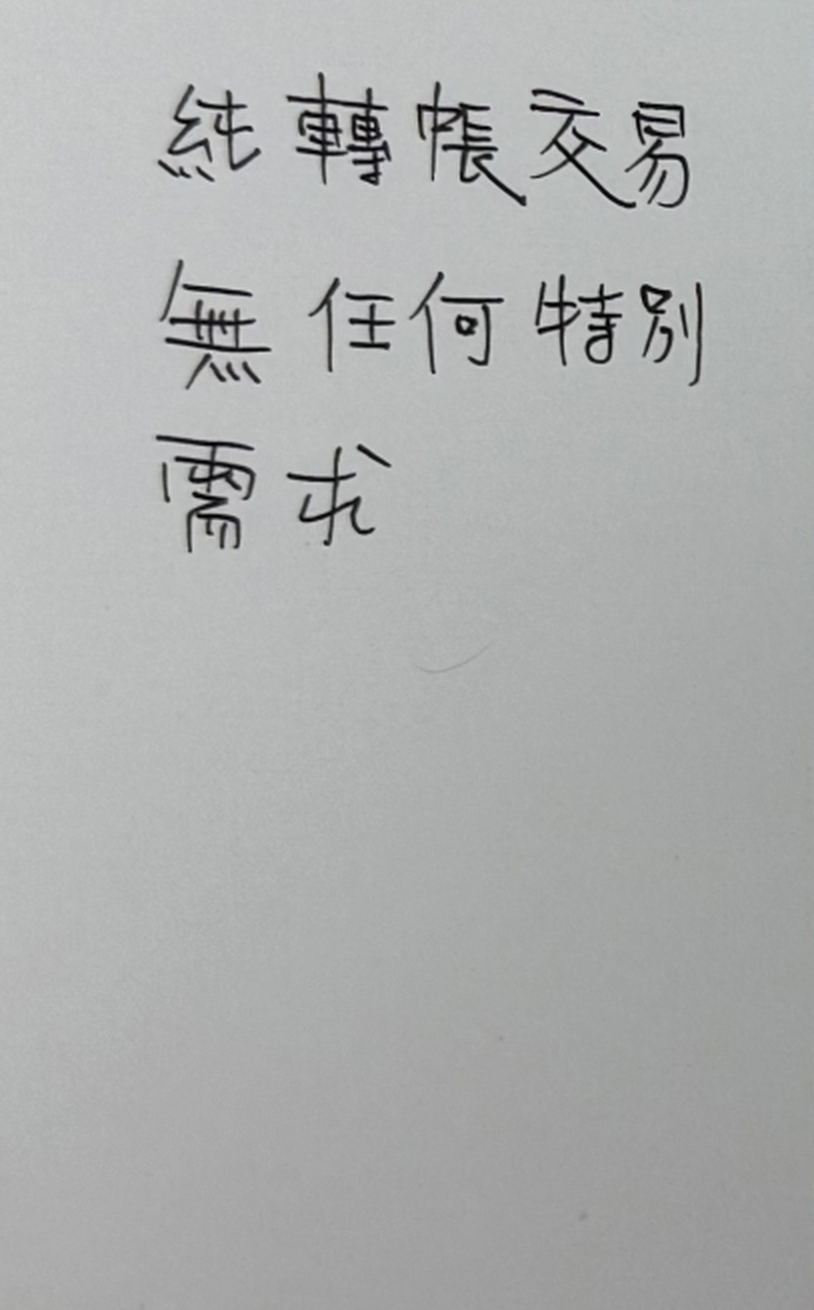 純轉帳交易
無任何特別
需求